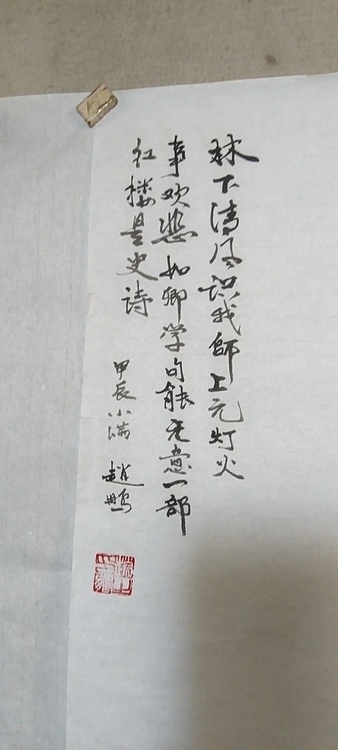 林下清风识我師上元灯火
事欢悲如卿学句能无意一部
红楼是史诗
甲辰小满
趙鹏